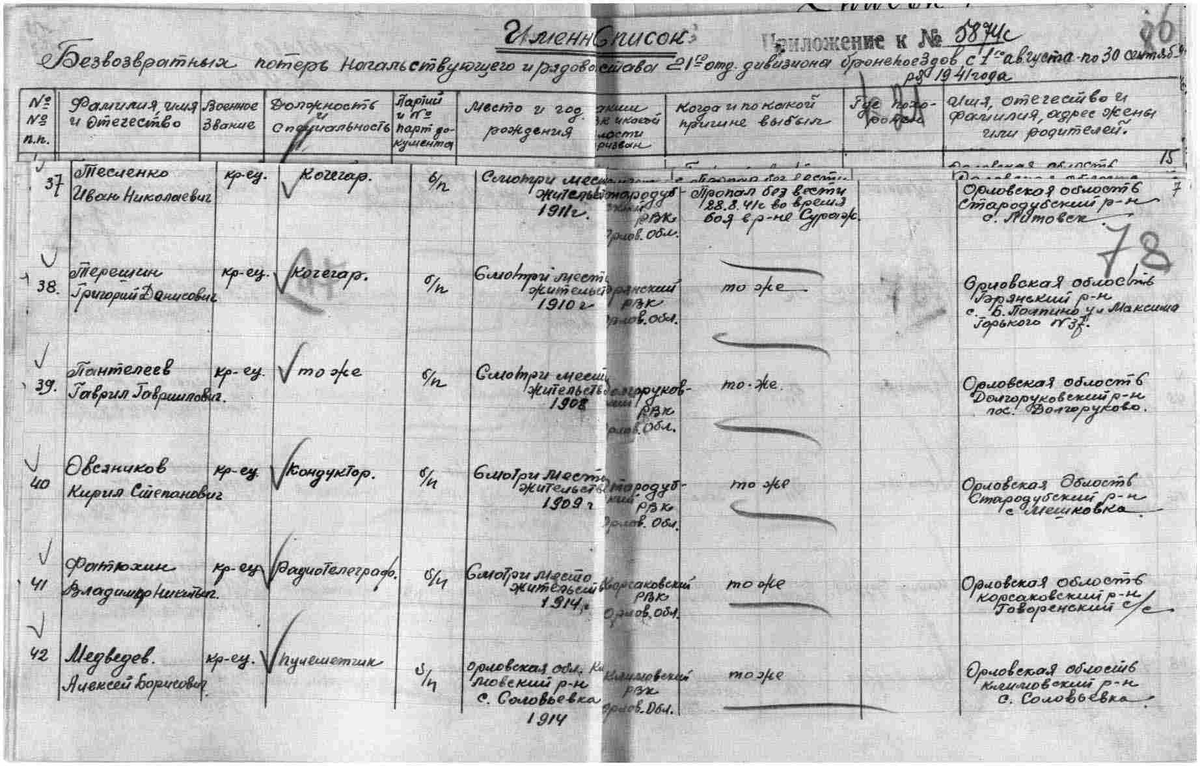 Именн Список
Приложение к № 5874с
86
Безвозвратных потерь начальствующего и рядово става 21го отд. дивизиона бронепоездов с 1го августа по 30 сентяб
ря 1941 года
№№ п.п.
Фамилия, имя и Отечество
Военное Звание
Должность и Специальность
Партий и № парт документа
Место и год рождения
аким РВК и какой ласти ризван
Когда и по какой причине выбыл
Где похоронен
Имя, отечество и фамилия, адрес жены или родителей.
15
Орловская область
37
Тесленко
Иван Николаевич
кр-ец.
Кочегар.
б/п
Смотри мес
жительс
1911г.
тародуб-
РВК
Орлов. Обл.
Пропал без вести
28.8.41г во время
боя в р-не Сураж.
Орловская область
Стародубский р-н
с. Литовск
7
78
38.
Терешин
Григорий Денисович
кр-ец.
Кочегар.
б/п
Смотри место
жительст
1910 г
Брянский
РВК
Орлов. обл.
то же
Орловская область
Брянский р-н
с. Б. Полпино ул Максима
Горького №37.
39.
Пантелеев
Гаврил Гаврилович.
кр-ец.
то же
б/п
Смотри мест
жительств
1908
Долгоруков-
ский
РВК
Орлов. Обл.
то-же
Орловская область
Долгоруковский р-н
пос. Долгоруково.
40
Овсяников
Кирил Степанович
кр-ец.
Кондуктор.
б/п
Смотри место
жительств
1909 г
тародуб-
ский
РВК
Орлов. Обл.
то же
Орловская Область
Стародубский р-н
с Мешковка
41
Фатюхин
Владимир Никитьич.
кр-ец
Радиотелеграф.
б/п
Смотри место
жительс
1914г
Корсаковский
РВК
Орлов. Обл.
то же
Орловская область
Корсаковский р-н
Говоренский с/с
42
Медведев.
Алексей Борисович
кр-ец.
пулеметчик
б/п
Орловская обл. Кли
мовский р-н
с. Соловьевка
1914
Климовский
РВК
Орлов. Обл.
то же
Орловская область
Климовский р-н
с. Соловьевка